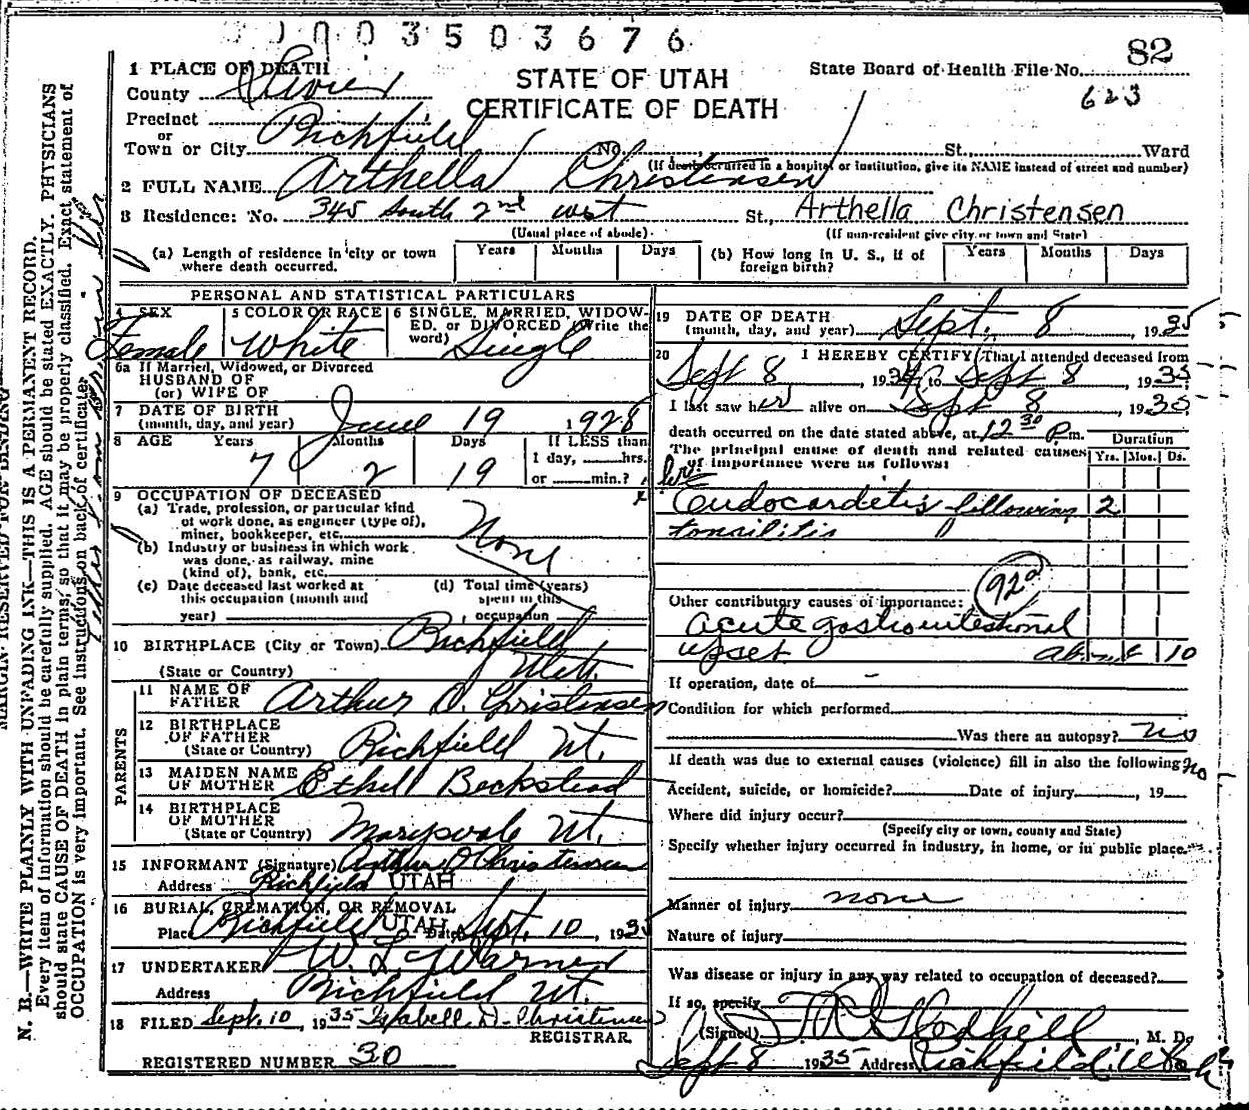 0003503676
82
STATE OF UTAH
CERTIFICATE OF DEATH
State Board of Health File No.
623
1 PLACE OF DEATH
County Sevier
Precinct
or
Town or City Richfield No. St., Ward
(If death occurred in a hospital or institution, give its NAME instead of street and number)
2 FULL NAME Arthella Christensen
3 Residence: No. 345 South 2nd west St., Arthella Christensen
(Usual place of abode)
(If non-resident give city or town and State)
(a) Length of residence in city or town where death occurred. Years Months Days
(b) How long in U. S., if of foreign birth? Years Months Days
PERSONAL AND STATISTICAL PARTICULARS
4 SEX Female
5 COLOR OR RACE White
6 SINGLE, MARRIED, WIDOWED, or DIVORCED (Write the word) Single
6a If Married, Widowed, or Divorced
HUSBAND OF
(or) WIFE OF
7 DATE OF BIRTH
(month, day, and year) June 19 1928
8 AGE Years 7 Months 2 Days 19
If LESS than 1 day, hrs. or min.?
9 OCCUPATION OF DECEASED
(a) Trade, profession, or particular kind of work done, as engineer (type of), miner, bookkeeper, etc. None
(b) Industry or business in which work was done, as railway, mine (kind of), bank, etc.
(c) Date deceased last worked at this occupation (month and year)
(d) Total time (years) spent in this occupation
10 BIRTHPLACE (City or Town) Richfield
(State or Country) Utah
PARENTS
11 NAME OF FATHER Arthur D. Christensen
12 BIRTHPLACE OF FATHER
(State or Country) Richfield Ut.
13 MAIDEN NAME OF MOTHER Ethell Beckstead
14 BIRTHPLACE OF MOTHER
(State or Country) Marysvale Ut.
15 INFORMANT (Signature) Arthur D Christensen
Address Richfield UTAH
16 BURIAL, CREMATION, OR REMOVAL
Place Richfield UTAH Date Sept. 10, 1935
17 UNDERTAKER W. L. Warner
Address Richfield Ut.
18 FILED Sept. 10, 1935 Isabell D. Christensen
REGISTRAR.
REGISTERED NUMBER 30
19 DATE OF DEATH
(month, day, and year) Sept. 8, 1935
20 I HEREBY CERTIFY, That I attended deceased from
Sept 8, 1935, to Sept 8, 1935
I last saw her alive on Sept 8, 1935
death occurred on the date stated above, at 12 30 P.m.
The principal cause of death and related causes of importance were as follows:
Duration
Yrs. Mos. Ds.
Endocardetis following 2
tonsilitis
92a
Other contributory causes of importance:
acute gastrointestional
upset about 10
If operation, date of -
Condition for which performed
Was there an autopsy? no
If death was due to external causes (violence) fill in also the following: no
Accident, suicide, or homicide? Date of injury , 19
Where did injury occur?
(Specify city or town, county and State)
Specify whether injury occurred in industry, in home, or in public place.
Manner of injury none
Nature of injury
Was disease or injury in any way related to occupation of deceased?
If so, specify
(Signed) T R Gledhill, M. D.
Sept 8 1935 Address Richfield, Utah
MARGIN RESERVED FOR BINDING
N. B.—WRITE PLAINLY WITH UNFADING INK—THIS IS A PERMANENT RECORD.
Every item of information should be carefully supplied. AGE should be stated EXACTLY. PHYSICIANS
should state CAUSE OF DEATH in plain terms, so that it may be properly classified. Exact statement of
OCCUPATION is very important. See instructions on back of certificate.